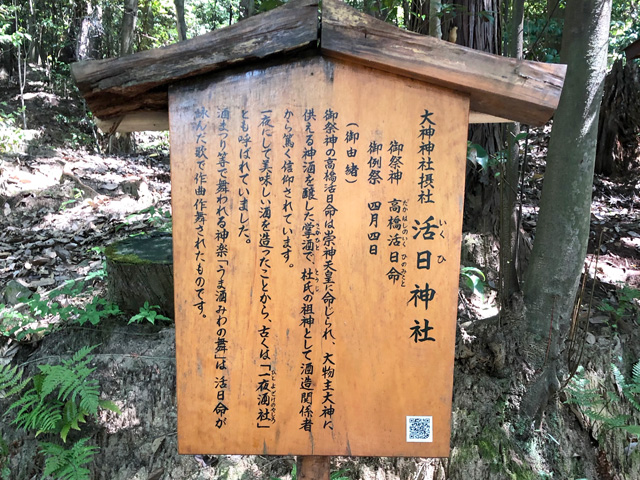 大神神社摂社 活日神社
いくひ
御祭神 高橋活日命
たかはしのいくひのみこと
御例祭 四月四日
(御由緒)
御祭神の高橋活日命は崇神天皇に命じられ、大物主大神に
供える神酒を醸した掌酒で、杜氏の祖神として酒造関係者
さかびと とうじ
から篤く信仰されています。
一夜にして美味しい酒を造ったことから、古くは「一夜酒社」
とも呼ばれていました。
酒まつり等で舞われる神楽「うま酒みわの舞」は 活日命が
詠んだ歌で作曲作舞されたものです。